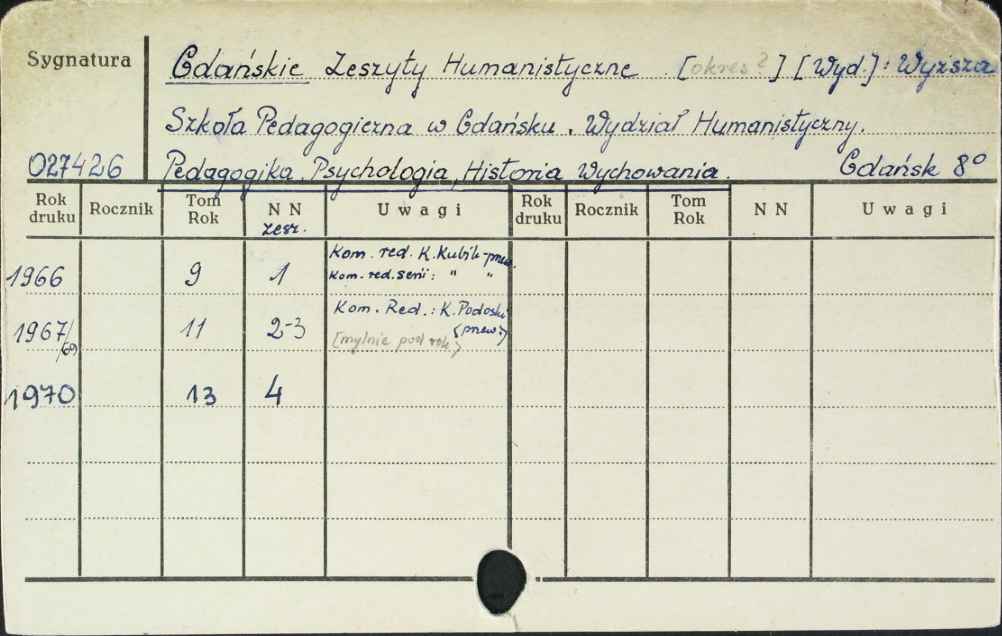 Sygnatura
Gdańskie Zeszyty Humanistyczne. [okres?] [Wyd.]: Wyższa
Szkoła Pedagogiczna w Gdańsku. Wydział Humanistyczny.
027426 Pedagogika. Psychologia, Historia Wychowania. Gdańsk 8°
Rok druku Rocznik Tom Rok N N zesz. Uwagi Rok druku Rocznik Tom Rok N N Uwagi
Kom. red. K. Kubik -
1966 9 1 Kom. red. serii: " "
Kom. Red.: K. Podoski
1967/69 11 2-3
[mylnie pod rok]
1970 13 4